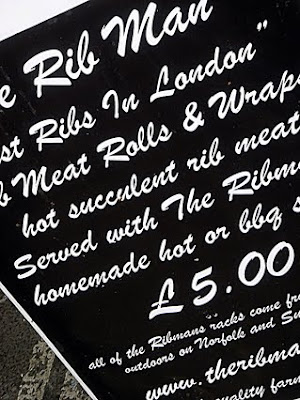 e Rib Man
st Ribs In London"
b Meat Rolls & Wraps
hot succulent rib meat
Served with The Ribm
homemade hot or bbq s
£5.00
all of the Ribmans racks come fr
outdoors on Norfolk and Su
www.theribma
quality farm